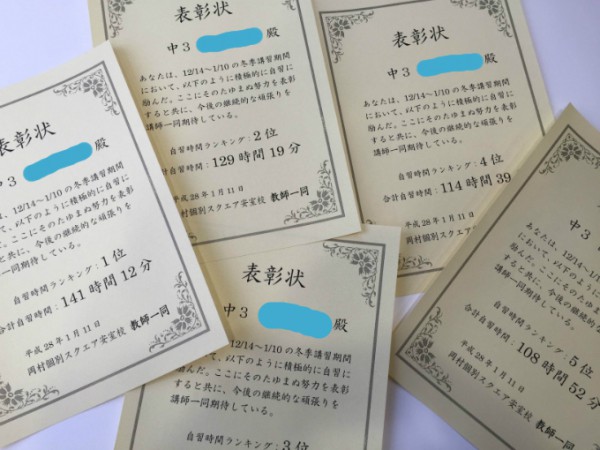 表彰状
中3 殿
あなたは、12/14~1/10の冬季講習期間
において、以下のように積極的に自習に
励んだ。ここにそのたゆまぬ努力を表彰
すると共に、今後の継続的な頑張りを
講師一同期待している。
自習時間ランキング:1位
合計自習時間:141時間12分
平成28年1月11日
岡村個別スクエア安室校 教師一同
表彰状
中3 殿
あなたは、12/14~1/10の冬季講習期間
において、以下のように積極的に自習に
励んだ。ここにそのたゆまぬ努力を表彰
すると共に、今後の継続的な頑張りを
講師一同期待している。
自習時間ランキング:2位
合計自習時間:129時間19分
平成28年1月11日
岡村個別スクエア安室校 教師一同
表彰状
中3 殿
あなたは、12/14~1/10の冬季講習期間
において、以下のように積極的に自習に
励んだ。ここにそのたゆまぬ努力を表彰
すると共に、今後の継続的な頑張りを
講師一同期待している。
自習時間ランキング:4位
合計自習時間:114時間39
平成28年1月11日
岡村個別スクエア安室校 教師一同
表彰状
中3 殿
あなたは、12/14~1/10の冬季講習期間
において、以下のように積極的に自習に
励んだ。ここにそのたゆまぬ努力を表彰
すると共に、今後の継続的な頑張りを
講師一同期待している。
自習時間ランキング:3位
中3
あなたは、12/14~1/10の
において、以下のように積
励んだ。ここにそのたゆま
すると共に、今後の継続的
講師一同期待している。
自習時間ランキング:5位
合計自習時間:108時間52分
平成28年1月11日
岡村個別スクエア安室校 教師一同